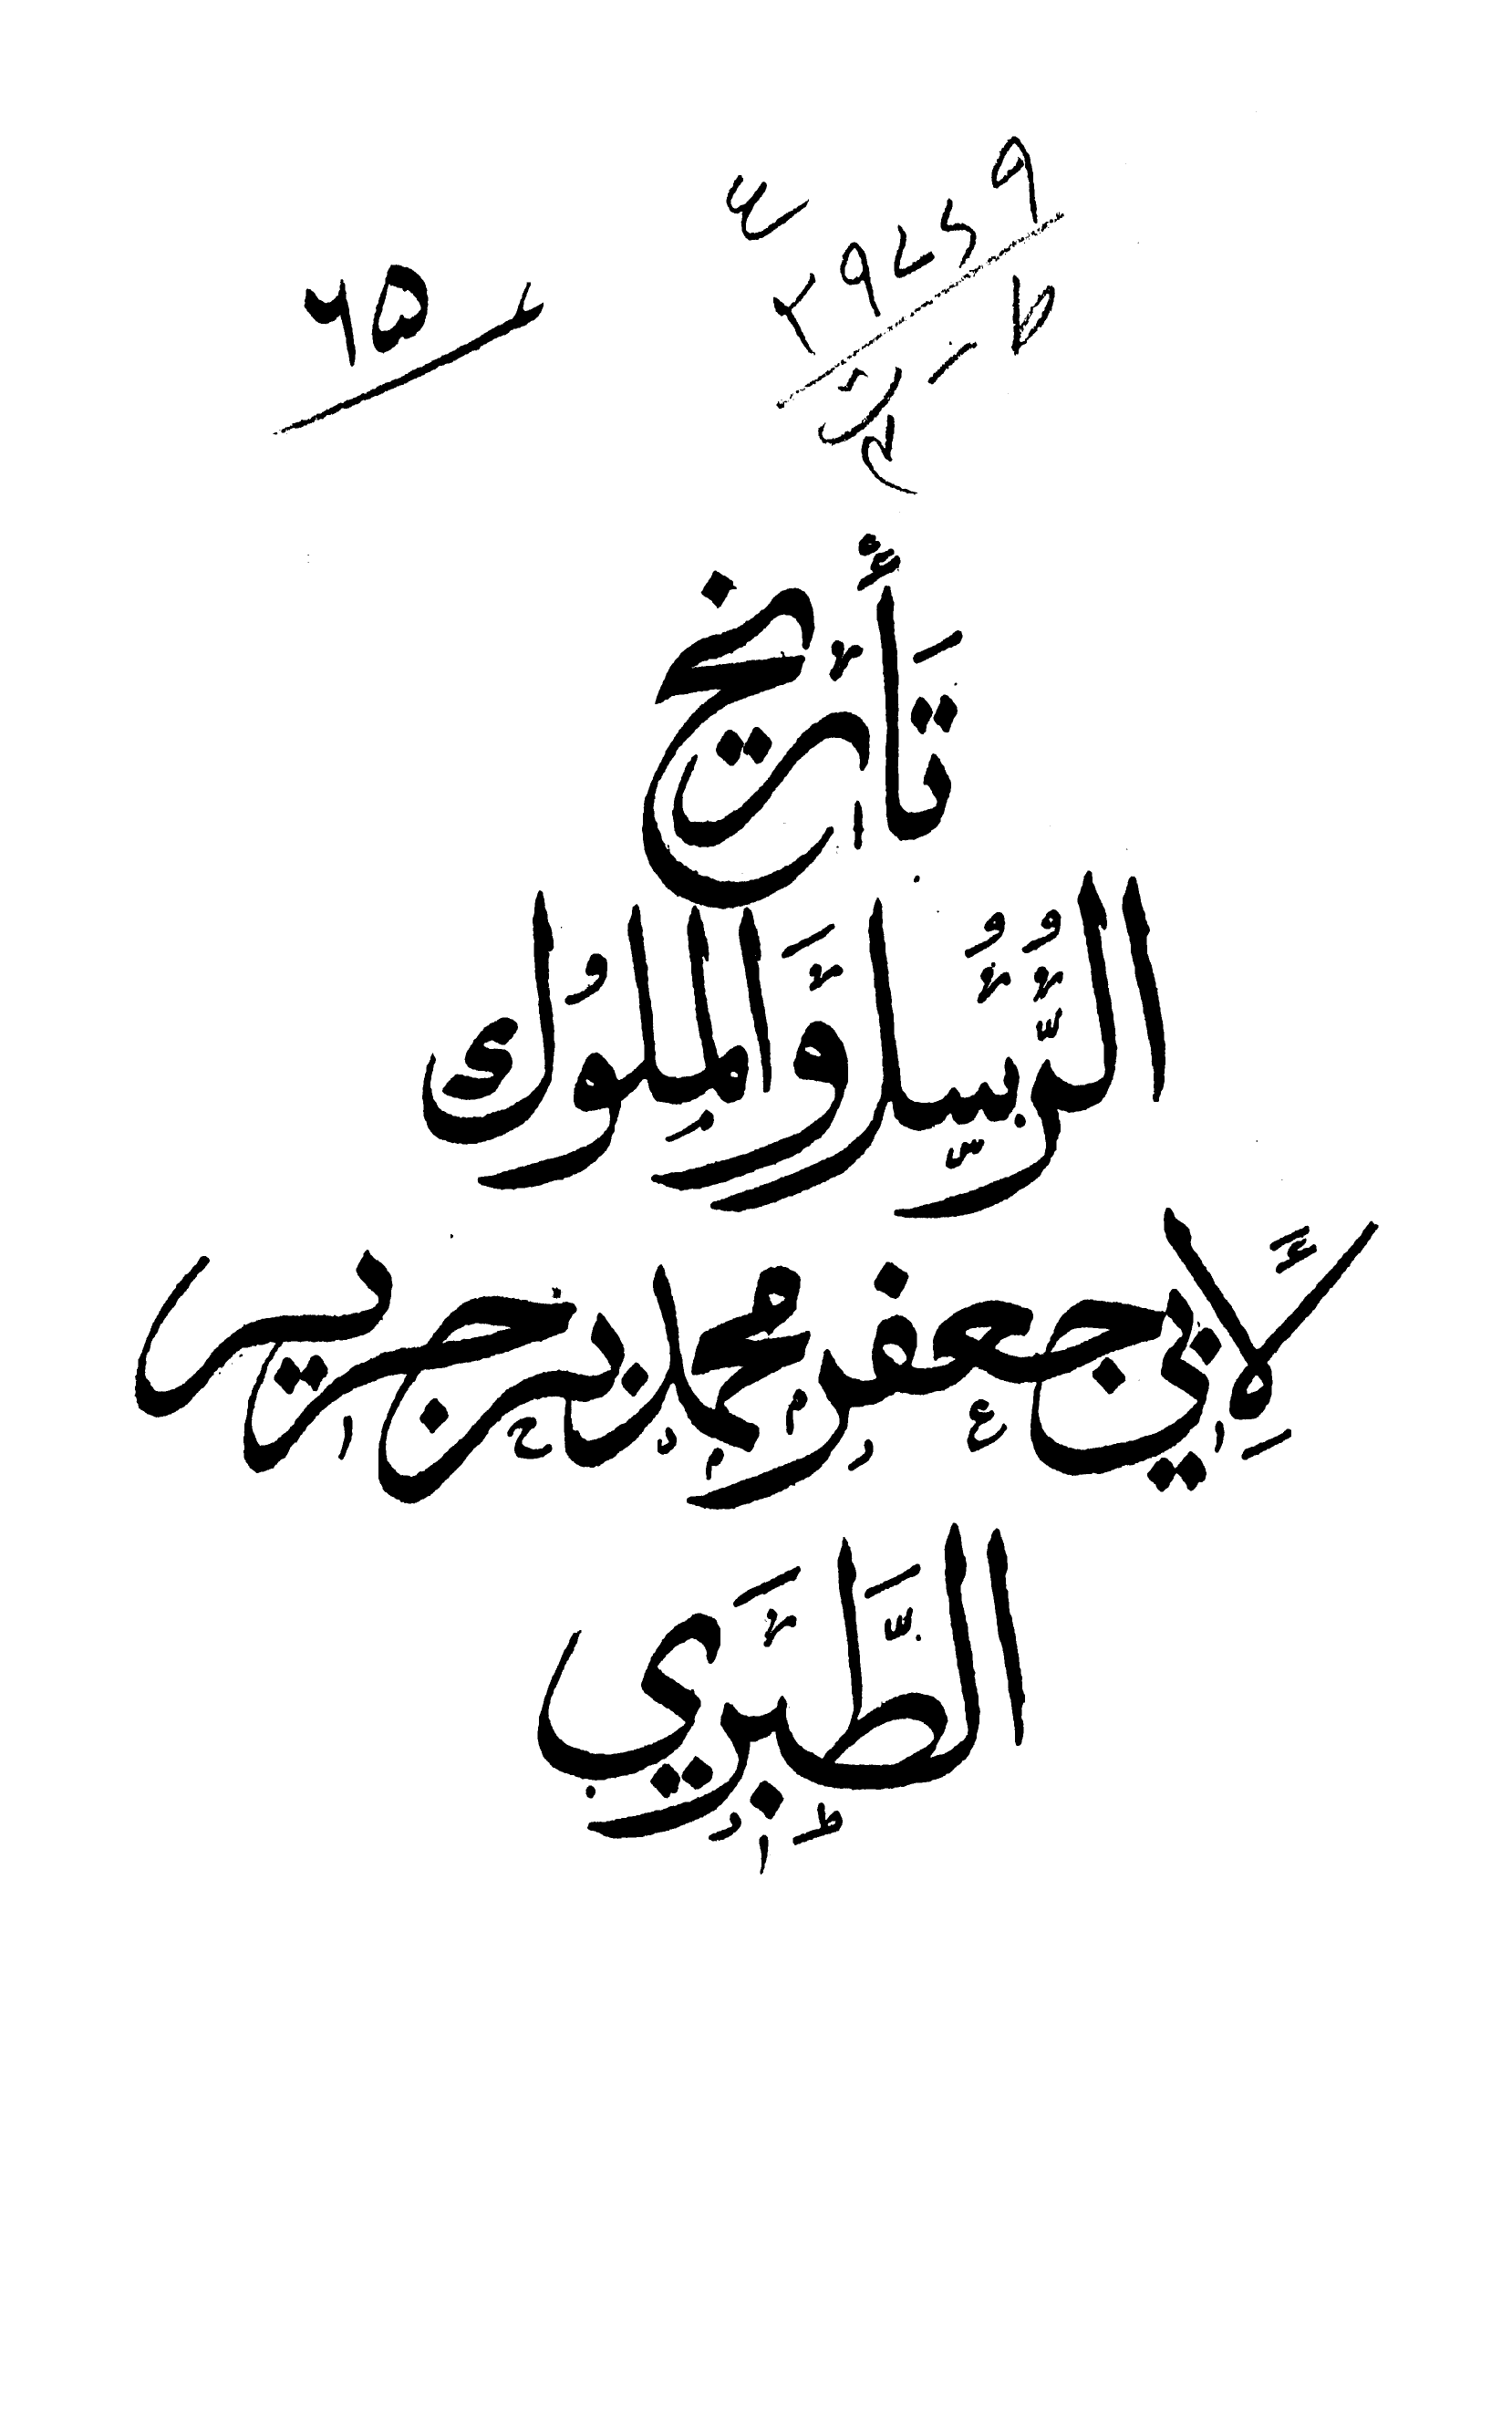 ٦٥
تَأْرِيخُ
الرُّسُلِ وَالْمُلُوكِ
لِأَبِي جَعْفَرٍ مُحَمَّدِ بْنِ جَرِيرٍ
الطَّبَرِي